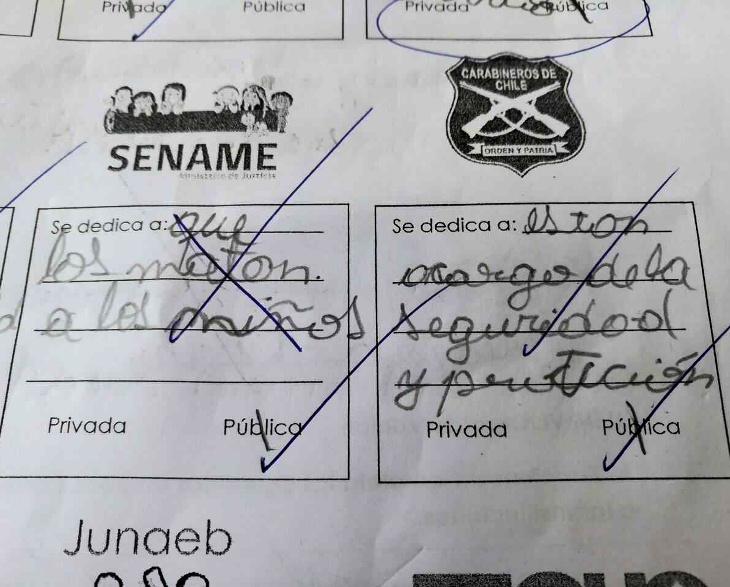 Privada Pública
Privada Pública
CARABINEROS DE
CHILE
ORDEN Y PATRIA
SENAME
Ministerio de Justicia
Se dedica a: que
los maton.
a los niños
Privada Pública
Se dedica a: eston
acargo dela
seguridad
y protección
Privada Pública
Junaeb